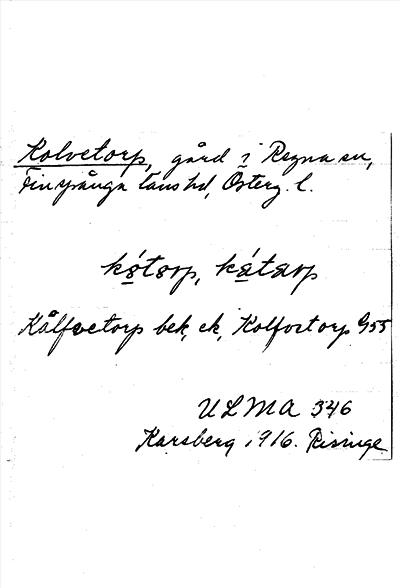 Kolvetorp, gård i Regna sn,
Finspånga läns hd, Österg. l.
kó̱tɵrp, ká̱tɵrp
Kålfvetorp bek, ek, Kolfvetorp G55
ULMA 346
Karsberg 1916. Risinge